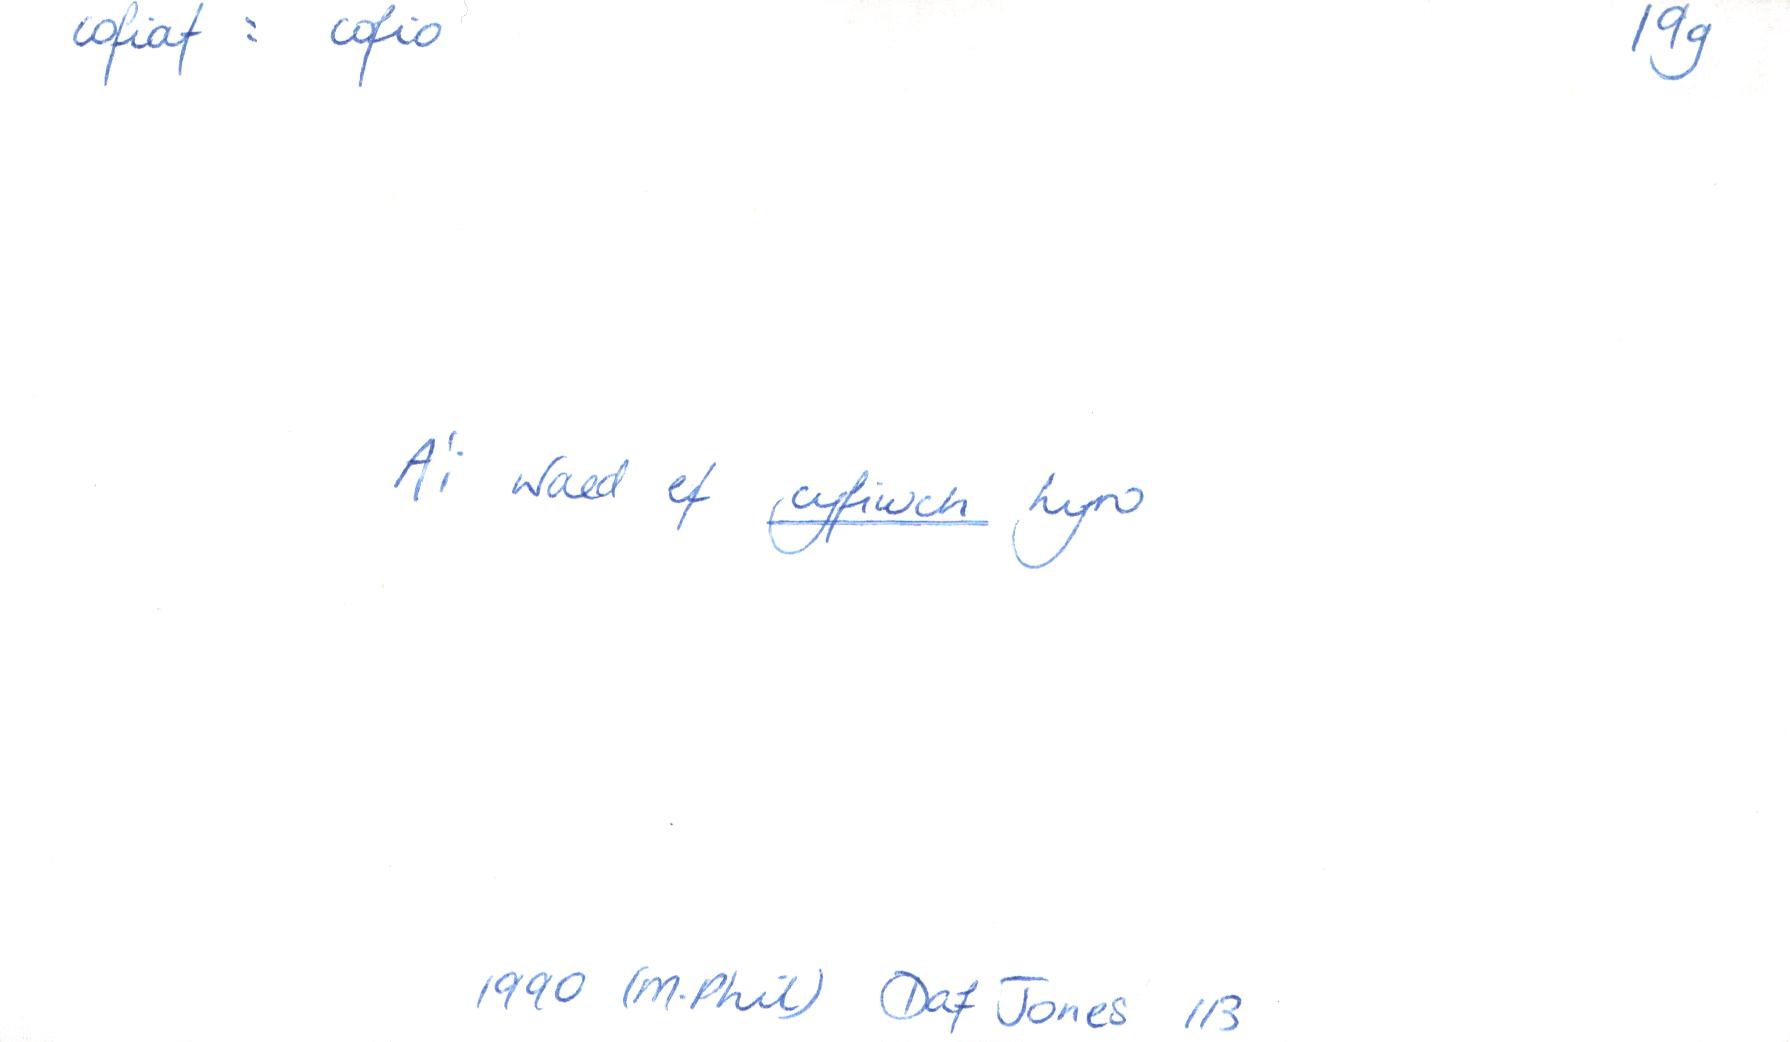 cofiaf : cofio 19g
A'i waed ef cyfiwch hyn
1990 (M.Phil) Daf Jones 113